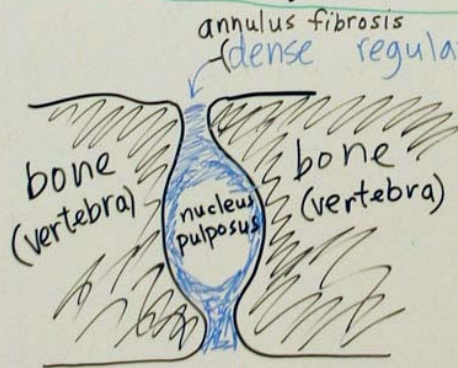 annulus fibrosis
(dense regula
bone
(vertebra)
nucleus
pulposus
bone
(vertebra)